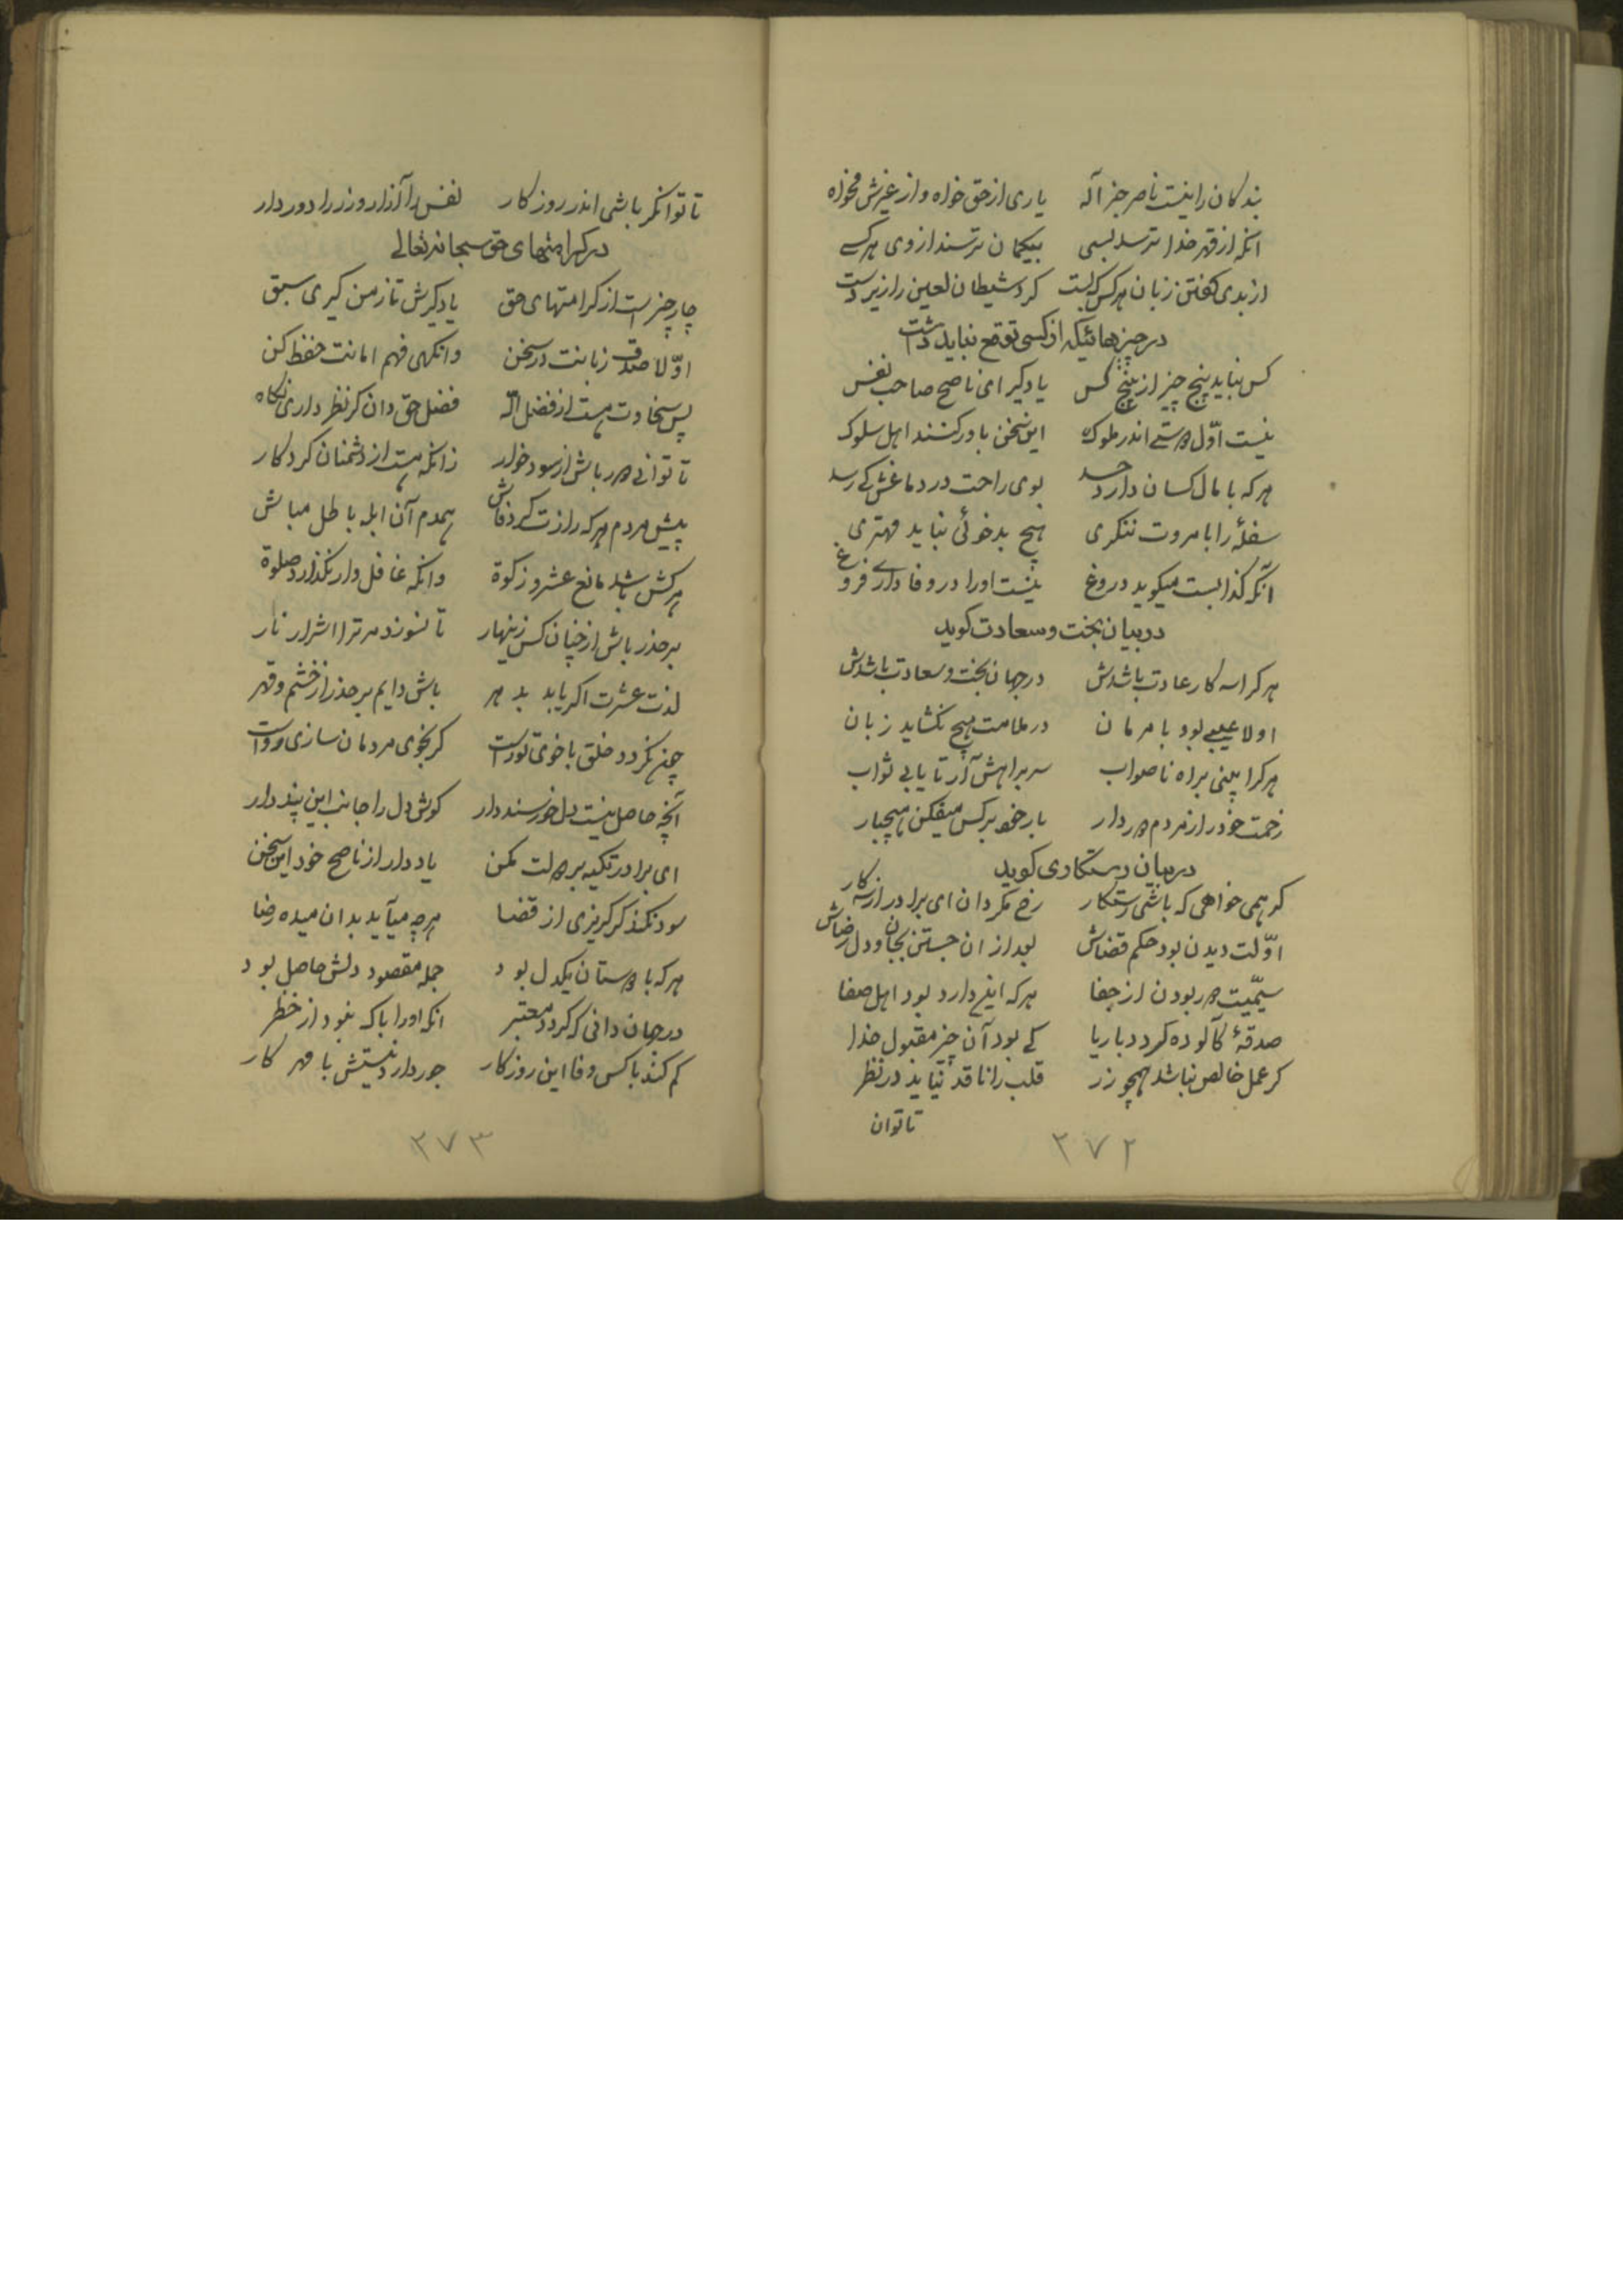 بندکان را نیست ناصر جز آله یاری از حق خواه و از غیرش مخواه
انکه از قهر خدا ترسد بسی بیکمان ترسند از وی هر کسے
از بدی کفتن زبان هر کس که بست کرد شیطان لعین را زیر دست
در چیزهائیکه از کسی توقع نباید داشت
کس نیابد پنج چیز از پنج کس یاد کیر ای ناصح صاحب نفس
نیست اوّل دوستے اندر ملوک این سخن باور کنند اهل سلوک
هر که با مال کسان دارد حسد بوی راحت در دماغش کے رسد
سفلهٔ را با مروت ننکری هیچ بدخوئی نیابد مهتری
آنکه کذابست میکوید دروغ نیست او را در وفاداری فروغ
در بیان بخت و سعادت کوید
هر کرا سه کار عادت باشدش در جهان بخت و سعادت باشدش
اولا عیبے بود با مردمان در ملامت هیچ نکشاید زبان
هر کرا بینی براه ناصواب سر براهش آر تا یابی ثواب
زحمت خود را از مردم دور دار بار خود بر کس میفکن هیچبار
در بیان رستکاری کوید
کر همی خواهی که باشی رستکار رخ مکردان ای برادر از سه کار
اوّلت دیدن بود حکم قضاش بعد از ان جستن بجان و دل رضاش
سیّمیت دور بودن از جفا هر که این دارد بود اهل صفا
صدقهٔ کآلوده کردد با ریا کے بود آن چیز مقبول خدا
کر عمل خالص نباشد همچو زر قلب را ناقد نیابد در نظر
تا توان
۲۷۲
تا توانکر باشی اندر روزکار نفس را از آرزوها دور دار
در کرامتهای حق سبحانه تعالے
چار چیز است از کرامتهای حق یاد کیرش تا ز من کیری سبق
اوّلا صدق زبانت در سخن وانکهی فهم امانت حفظ کن
پس سخاوت هست از فضل اله فضل حق دان کر نظر داری نکاه
تا توانے دور باش از سود خوار زانکه هست از دشمنان کردکار
پیش مردم هر که رازت کرد فاش همدم آن ابله باطل مباش
هر کش باشد مانع عشر و زکوة وانکه غافل وار نکذارد صلوة
بر حذر باش از چنان کس زینهار تا نسوزد مر ترا اشرار نار
لذت عشرت اکر یابد بدهر باش دایم بر حذر از خشم و قهر
چون نکردد خلق با خوی تو راست کر بخوی مردمان سازی رواست
آنچه حاصل نیست دل خرسند دار کوش دل را جانب این پند دار
ای برادر تکیه بر دولت مکن یاد دار از ناصح خود این سخن
سود نکند کر کریزی از قضا هر چه میآید بدان میده رضا
هر که با دوستان یکدل بود جمله مقصود دلش حاصل بود
در جهان دانی که کردد معتبر انکه او را باک نبود از خطر
کم کند با کس وفا این روزکار جور دارد نیستش با مهر کار
۲۷۳